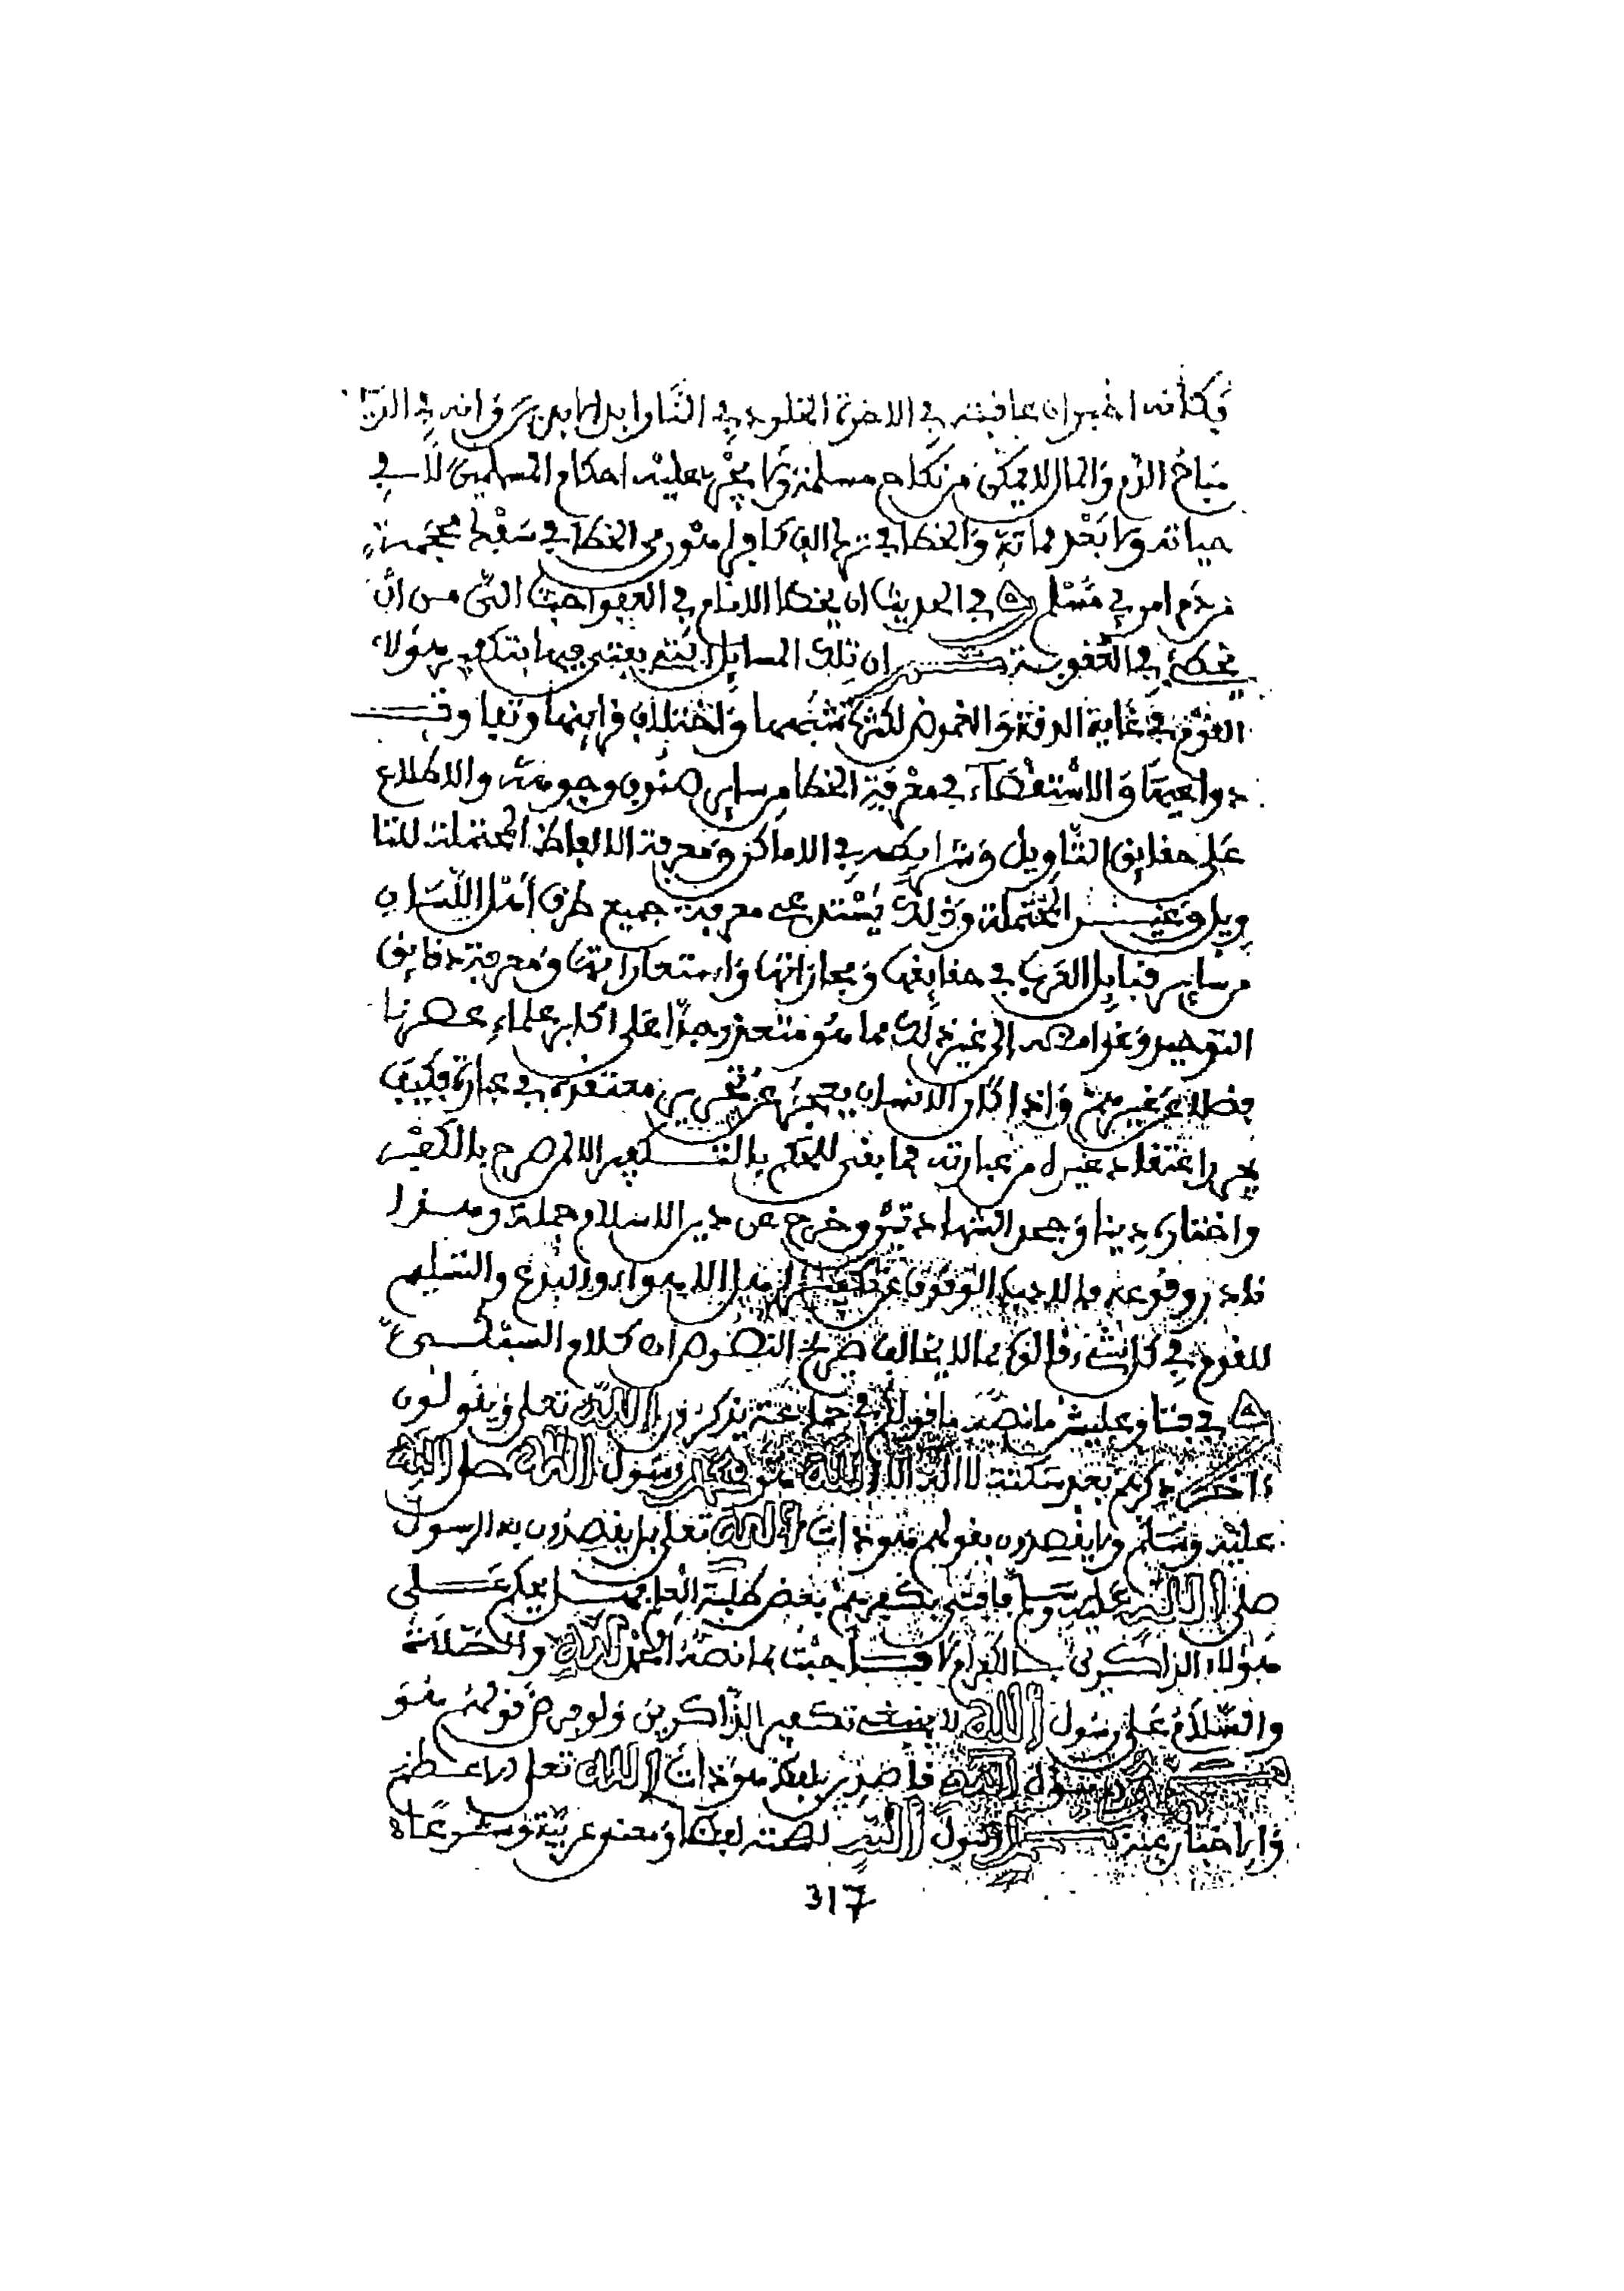 فكأنه اخبر ان عاقبته في الاخرة الخلود في النار ابد الابدين وانه في الدنيا
مباح الدم والمال لا يمكن من نكاح مسلمة ولا يجري عليه احكام المسلمين لا في
حياته ولا بعد مماته والخطا في ترك الف كافر اهون من الخطا في سفك محجمة
من دم امرء مسلم وفي الحديث ان يخطا الامام في العفو احب الي من ان
يخطئ في العقوبة ثم ان تلك المسايل التي يفتى فيها بتكفير هؤلاء
القوم في غاية الدقة والغموض لكثرة تشعبها واختلاف قراينها وتفاوت
دواعيها والاستقصاء في معرفة الخطا من ساير صنوف وجوهه والاطلاع
على حقايق التاويل وشرايطه في الاماكن ومعرفة الالفاظ المحتملة للتا
ويل وغير المحتملة وذلك يستدعي معرفة جميع طرق اهل اللسان
من ساير قبايل العرب في حقايقها ومجازاتها واستعاراتها ومعرفة دقايق
التوحيد وغوامضه الى غير ذلك مما هو متعذر جدا على اكابر علماء عصرنا
فضلا عن غيرهم واذا كان الانسان يعجز عن تحرير معتقده في عبارة فكيف
يحرر اعتقاد غيره من عبارته فما بقى للحكم بالتكفير الا لمن صرح بالكفر
واختاره دينا وجحد الشهادتين وخرج عن دين الاسلام جملة وهذا
نادر وقوعه فالادب الوقوف عن تكفير اهل الاهواء والبدع والتسليم
للقوم في كل شيء قالوه مما لا يخالف صريح النصوص اه كلام السبكي
في فتاوي عليش ما نصه ما قولكم في جماعة يذكرون الله تعلى ويقولون
اخر ذكرهم بعد سكتة لا اله الا الله هو محمد رسول الله صلى الله
عليه وسلم ولا يقصدون بقولهم هو ذات الله تعلى بل يقصدون به الرسول
صلى الله عليه وسلم فافتى بكفرهم بعض طلبة العلم فهل يحكم على
هؤلاء الذاكرين بالكفر ام لا فاجبت بما نصه الحمد لله والصلاة
والسلام على رسول الله لا ينبغي تكفير الذاكرين ولو فرض قولهم هو
محمد رسول الله قاصدين بلفظ هو ذات الله تعلى
رسول الله لصحته لفظا ومعنى عربية وشرعا اه
317